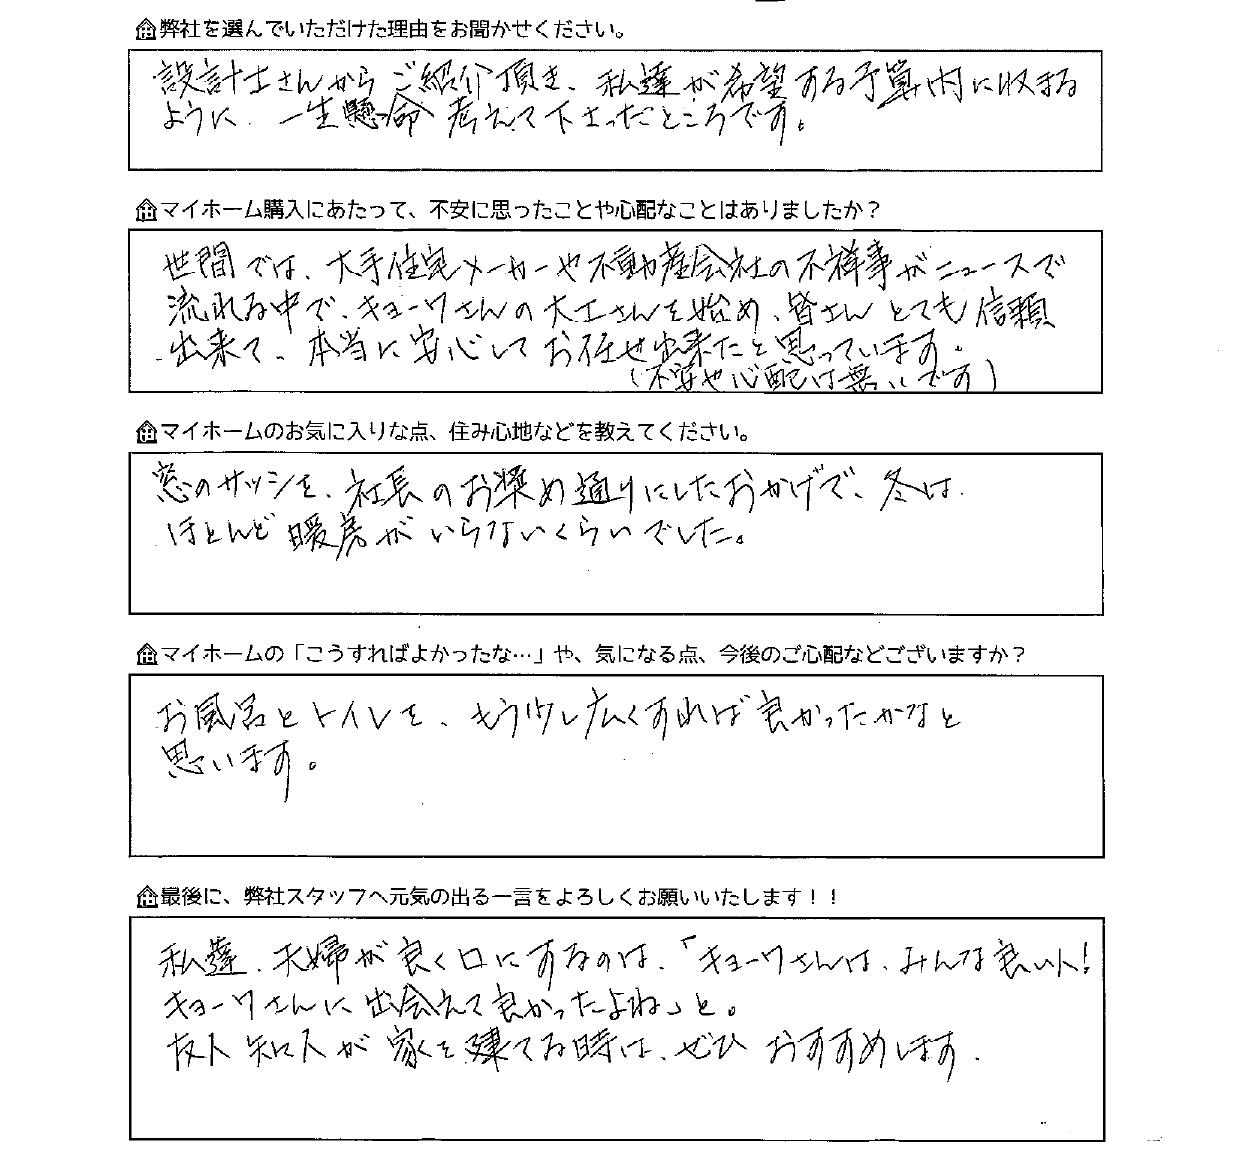 弊社を選んでいただけた理由をお聞かせください。
設計士さんからご紹介頂き、私達が希望する予算内に収まる
ように、一生懸命考えて下さったところです。
マイホーム購入にあたって、不安に思ったことや心配なことはありましたか？
世間では、大手住宅メーカーや不動産会社の不祥事がニュースで
流れる中で、キョーワさんの大工さんを始め、皆さんとても信頼
出来て、本当に安心してお任せ出来たと思っています。
（不安や心配は無いです）
マイホームのお気に入りな点、住み心地などを教えてください。
窓のサッシを、社長のお奨め通りにしたおかげで、冬は
ほとんど暖房がいらないくらいでした。
マイホームの「こうすればよかったな…」や、気になる点、今後のご心配などございますか？
お風呂とトイレを、もう少し広くすれば良かったかなと
思います。
最後に、弊社スタッフへ元気の出る一言をよろしくお願いいたします！！
私達、夫婦が良く口にするのは、「キョーワさんは、みんな良い人！
キョーワさんに出会えて良かったよね」と。
友人知人が家を建てる時は、ぜひおすすめします。